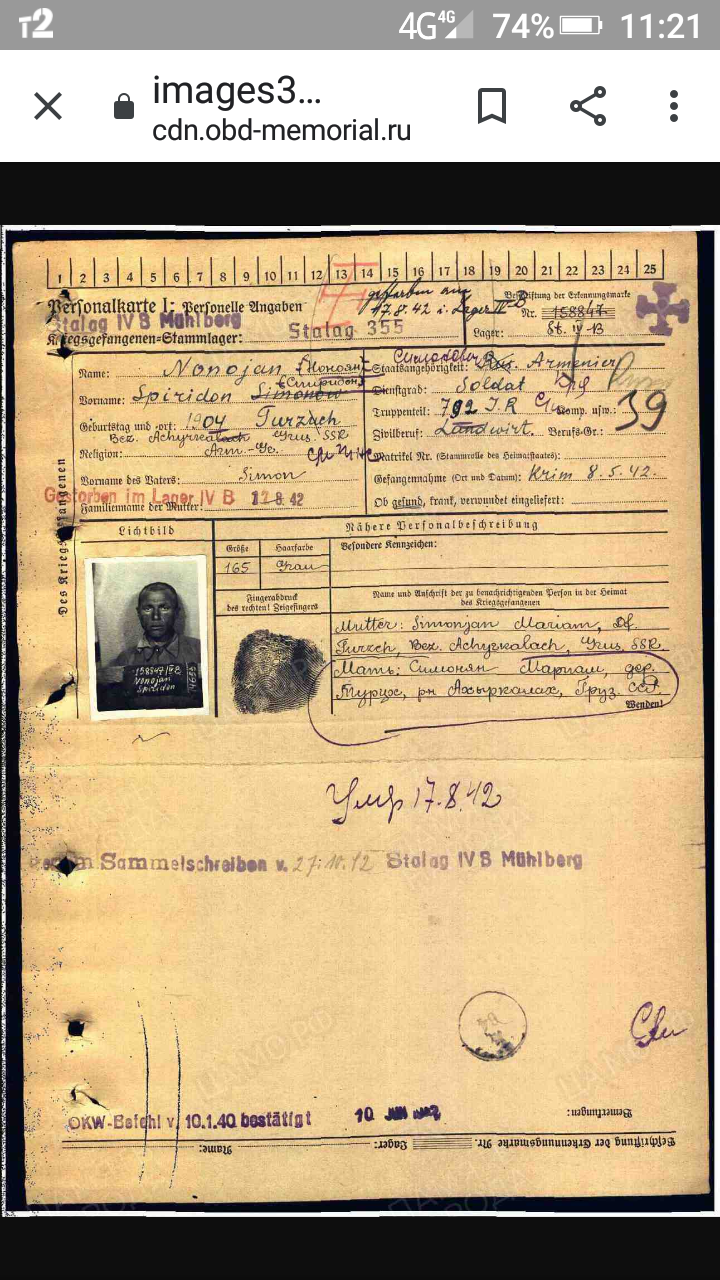 т2 4G 4G 74% 11:21
images3...
cdn.obd-memorial.ru
1 2 3 4 5 6 7 8 9 10 11 12 13 14 15 16 17 18 19 20 21 22 23 24 25
gestorben am
17.8.42 i. Lager IV B
Personalkarte I: Personelle Angaben
Beschriftung der Erkennungsmarke
Stalag IV B Mühlberg
Nr. 158847
Kriegsgefangenen-Stammlager: Stalag 355
Lager: St. IV B
Des Kriegsgefangenen
Name: Nonojan Нонояń
Staatsangehörigkeit: Rus. Armenier
Vorname: Spiridon Simonow Спиридон
Dienstgrad: Soldat
Geburtstag und -ort: 1904 Turzch
Truppenteil: 792 J.R Komp. usw.:
39
Bez. Achyrkalach Grus. SSR
Zivilberuf: Landwirt. Berufs-Gr.:
Religion: Arm.-Gr.
Matrikel Nr. (Stammrolle des Heimatstaates):
Vorname des Vaters: Simon
Gefangennahme (Ort und Datum): Krim 8.5.42.
Gestorben im Lager IV B 17.8.42
Familienname der Mutter:
Ob gesund, krank, verwundet eingeliefert:
Lichtbild
Nähere Personalbeschreibung
Größe Haarfarbe Besondere Kennzeichen:
165 Grau
Fingerabdruck
des rechten! Zeigefingers
Name und Anschrift der zu benachrichtigenden Person in der Heimat
des Kriegsgefangenen
Mutter: Simonjan Mariam, Df.
Turzch, Bez. Achyrkalach, Grus. SSR
Мать: Симонян Мариам, дер.
Турцх, рн Ахыркалах, Груз. ССР.
Wenden!
158847 IV B
Vonojan
Spiridon
Умер 17.8.42
Sammelschreiben v. 27.10.42 Stalag IV B Mühlberg
OKW-Befehl v. 10.1.40 bestätigt
Bemerkungen:
Beschriftung der Erkennungsmarke Nr. Lager: Name: